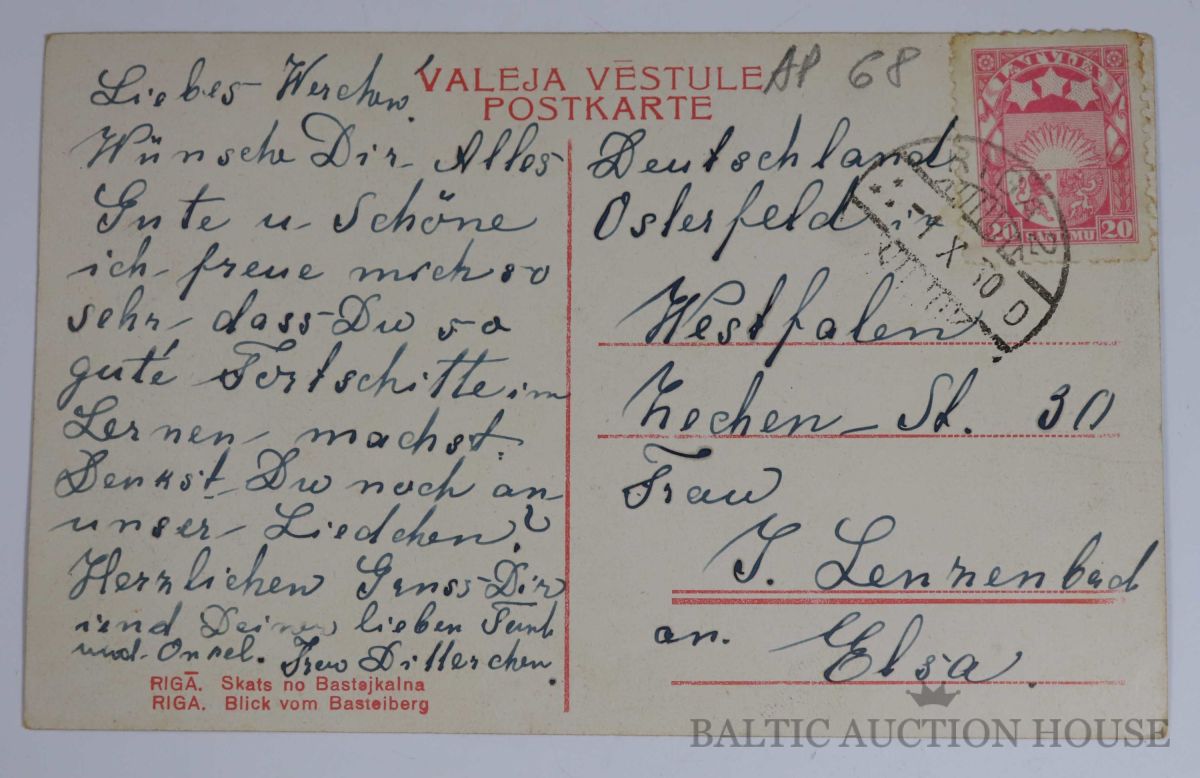 VALEJA VĒSTULE
POSTKARTE
AP 68
LATVIJA
20 SANTIMU 20
RIGA
7 X 30 D
Liebes Werchen,
Wünsche Dir Alles
Gute u. Schöne
ich freue mich so
sehr, dass Du so
gute Fortschitte im
Lernen machst.
Denkst Du noch an
unser Liedchen?
Herzlichen Gruss Dir
und Deinen lieben Tant
und Onkel. Frau Ditterchen.
Deutschland
Osterfeld in
Westfalen
Zechen-St. 30
Frau
J. Lenzenbach
an. Elsa.
RIGĀ. Skats no Bastejkalna
RIGA. Blick vom Basteiberg
BALTIC AUCTION HOUSE